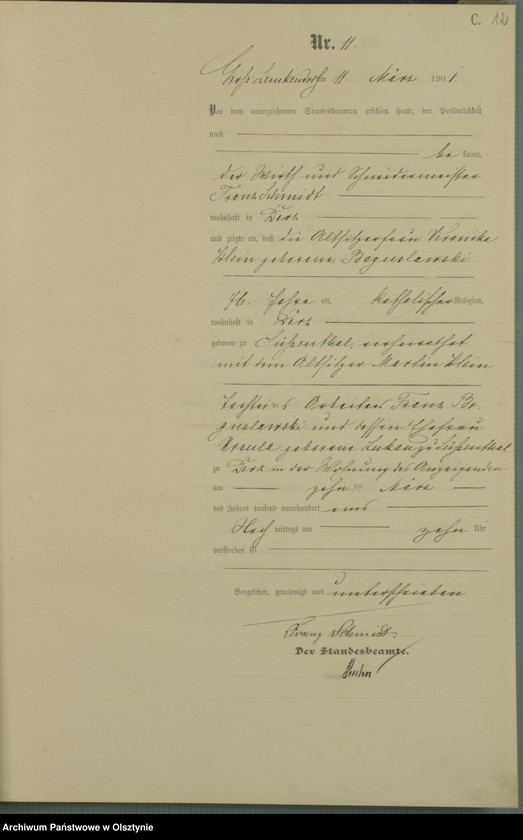 C. 12
Nr. 11.
Groß Lemkendorf am 11. März 1901.
Vor dem unterzeichneten Standesbeamten erschien heute, der Persönlichkeit
nach
be kannt,
der Wirth und Schneidermeister
Franz Schmidt
wohnhaft in Derz
und zeigte an, daß die Altsitzerfrau Veronika
Klein geborene Boguslawski
76. Jahre alt, katholischer Religion,
wohnhaft in Derz
geboren zu verheirathet
mit dem Altsitzer Martin Klein
Tochter des Arbeiters Franz Bo-
guslawski und dessen Ehefrau
Ursula geborene
zu Derz in der Wohnung des Anzeigenden
am zehn ten März
des Jahres tausend neunhundert eins
Nach mittags um zehn Uhr
verstorben sei
Vorgelesen, genehmigt und unterschrieben
Franz Schmidt.
Der Standesbeamte.
Archiwum Państwowe w Olsztynie